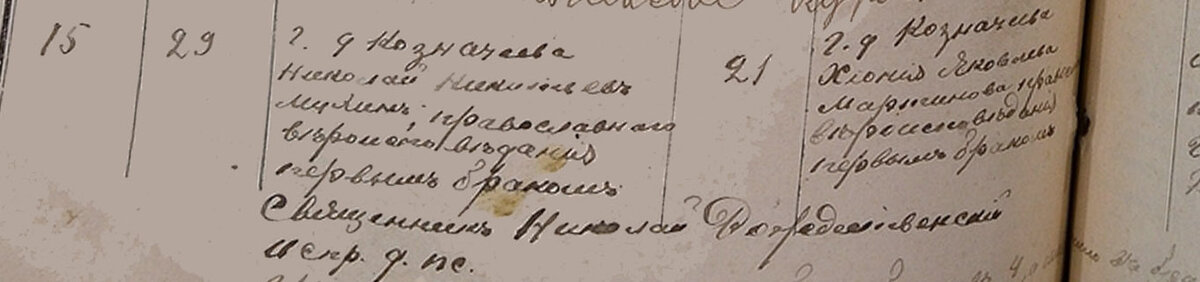 15
29
г. д Козначева
Николай Никитьевъ
Мухинъ, православнаго
вѣроисповѣданія
первымъ бракомъ
21
г. д Козначева
Хіонія Яковлева
Мартинова, правосл
вѣроисповѣданія
первымъ бракомъ
Священникъ Николай Рождественскій
испр. д. пс.